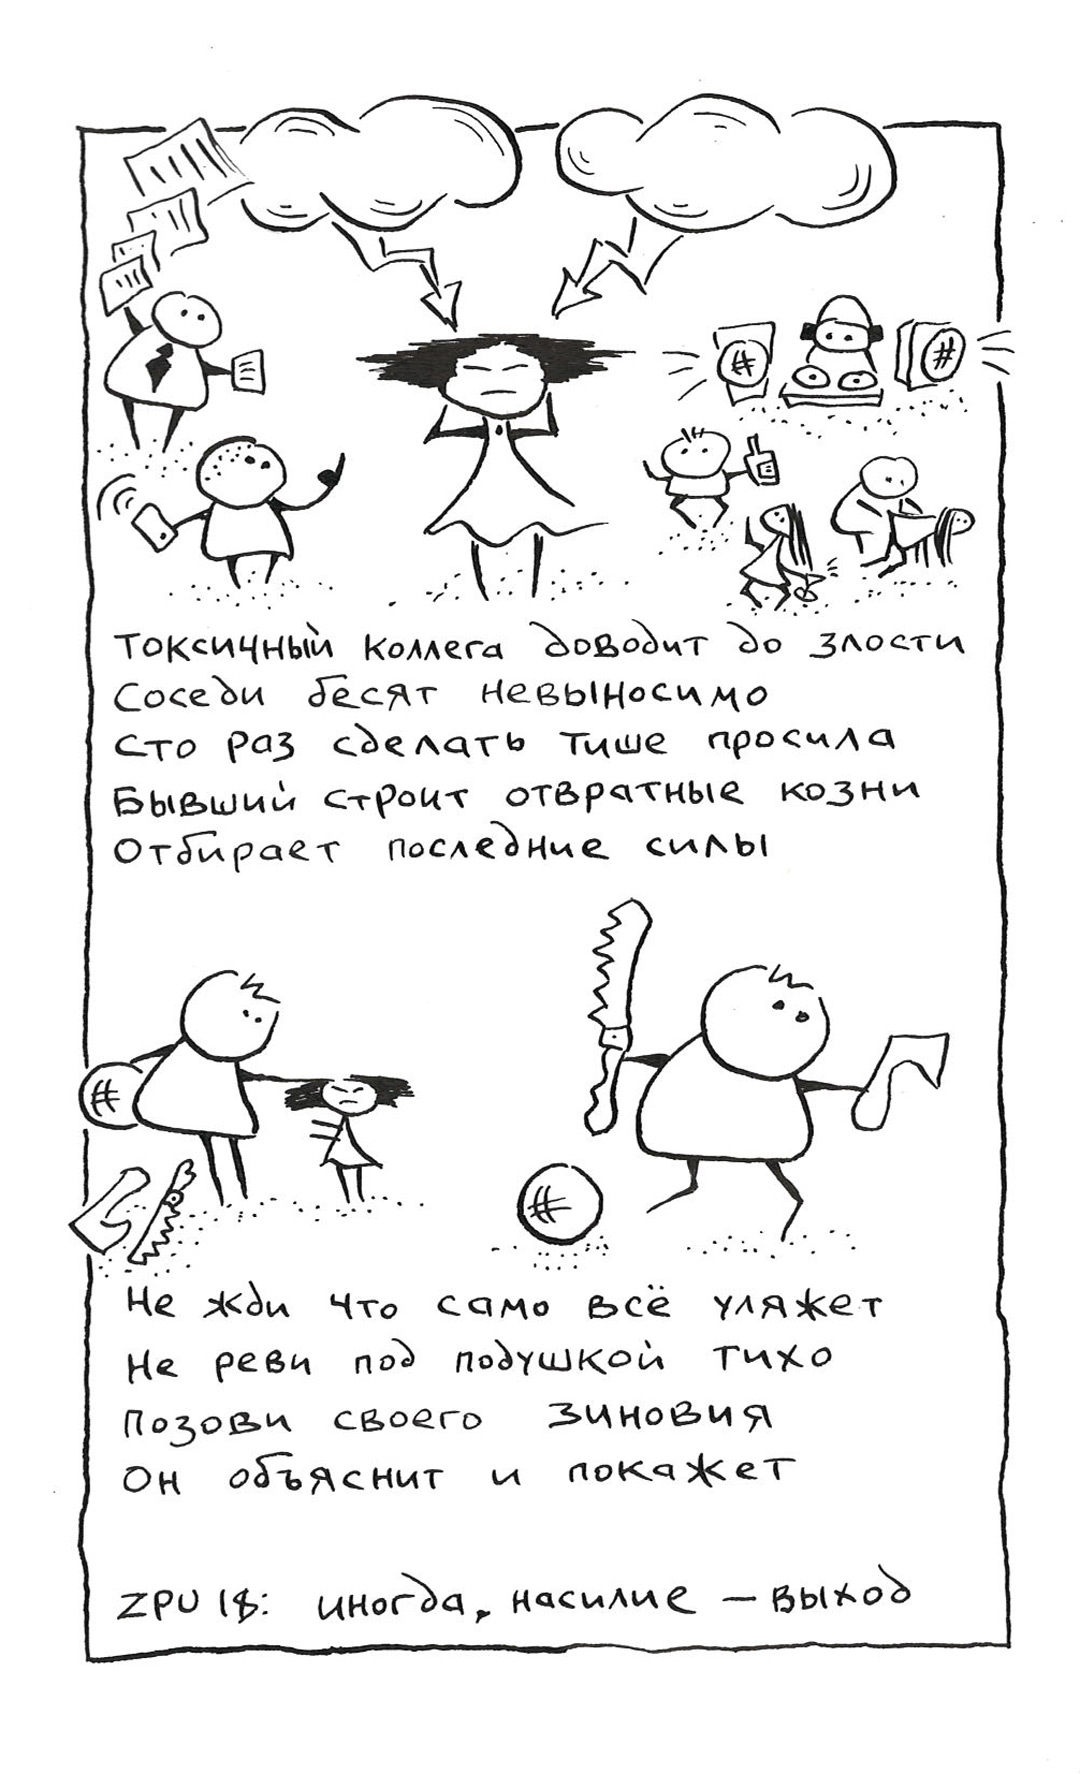 Токсичный коллега доводит до злости
Соседи бесят невыносимо
Сто раз сделать тише просила
Бывший строит отвратные козни
Отбирает последние силы
Не жди что само всё уляжет
Не реви под подушкой тихо
Позови своего Зиновия
Он объяснит и покажет
ZPU 18: иногда, насилие — выход